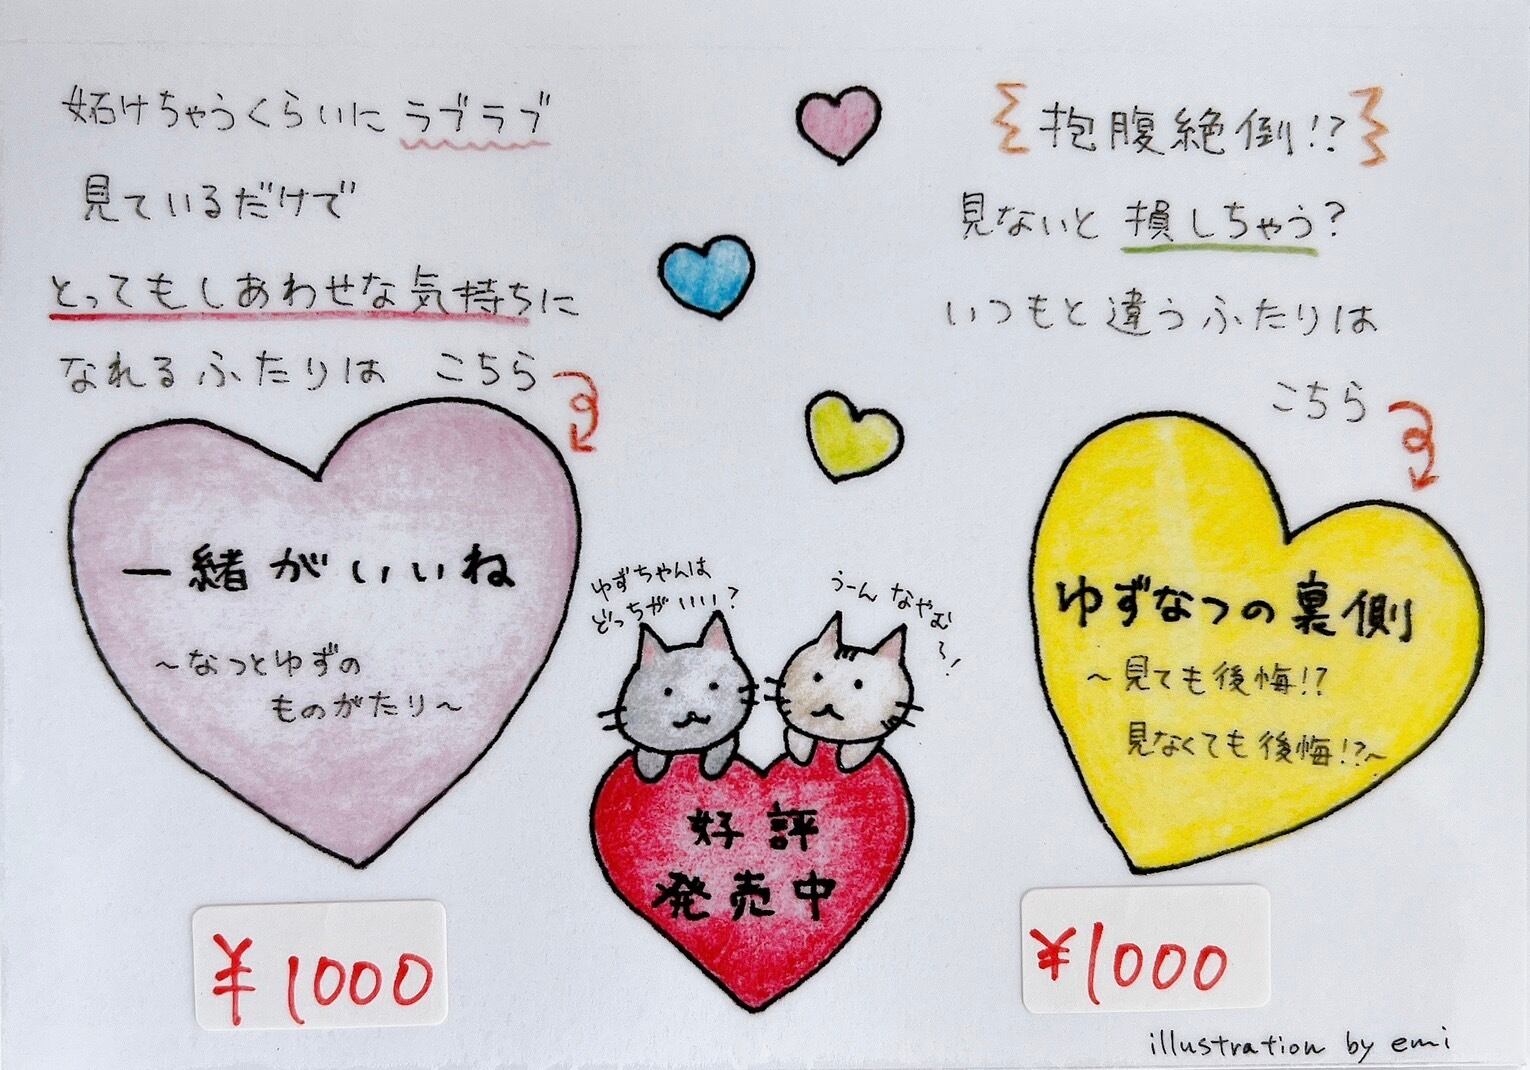 妬けちゃうくらいに ラブラブ
見ているだけで
とってもしあわせな気持ちに
なれるふたりは こちら
一緒がいいね
～なつとゆずの
ものがたり～
¥1000
ゆずちゃんは
どっちがいい？
うーん なやむ
う！
好評
発売中
抱腹絶倒!?
見ないと 損しちゃう？
いつもと違うふたりは
こちら
ゆずなつの裏側
～見ても後悔!?
見なくても後悔!?～
¥1000
illustration by emi